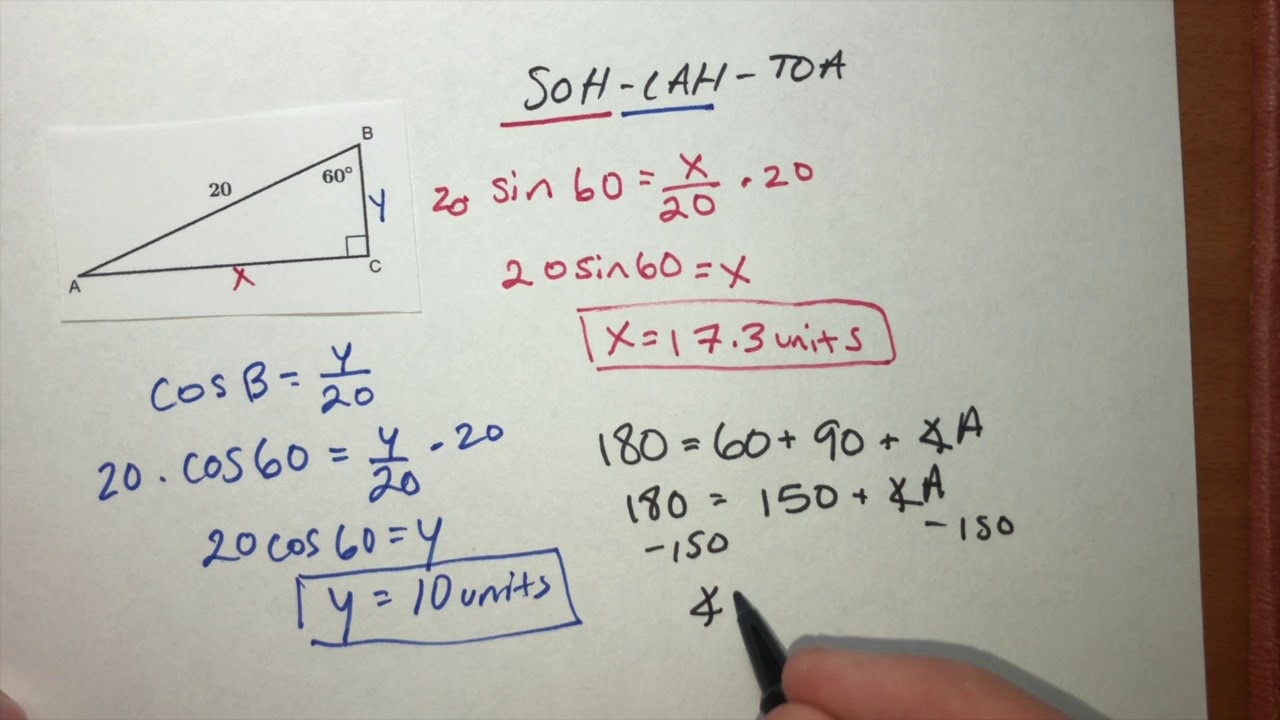 SOH-CAH-TOA
B
20
60°
y
C
x
A
20 sin 60 = x/20 · 20
20 sin 60 = x
x = 17.3 units
cos B = y/20
20 · cos 60 = y/20 · 20
20 cos 60 = y
y = 10 units
180 = 60 + 90 + ∡A
180 = 150 + ∡A
-150 -150
∡